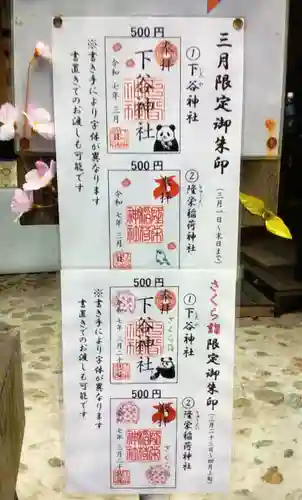 三月限定御朱印
(三月一日〜末日まで)
①下谷神社
したや
500円
奉拝
下谷神社
令和七年三月
日
②隆栄稲荷神社
500円
令和七年三月
日
※書き手により字体が異なります
書置きでのお渡しも可能です
さくら詣限定御朱印
①下谷神社
したや
500円
奉拝
下谷神社
さくら詣
令和七年三月二十
日
②隆栄稲荷神社
500円
さくら詣
令和七年三月二十
日
※書き手により字体が異なります
書置きでのお渡しも可能です